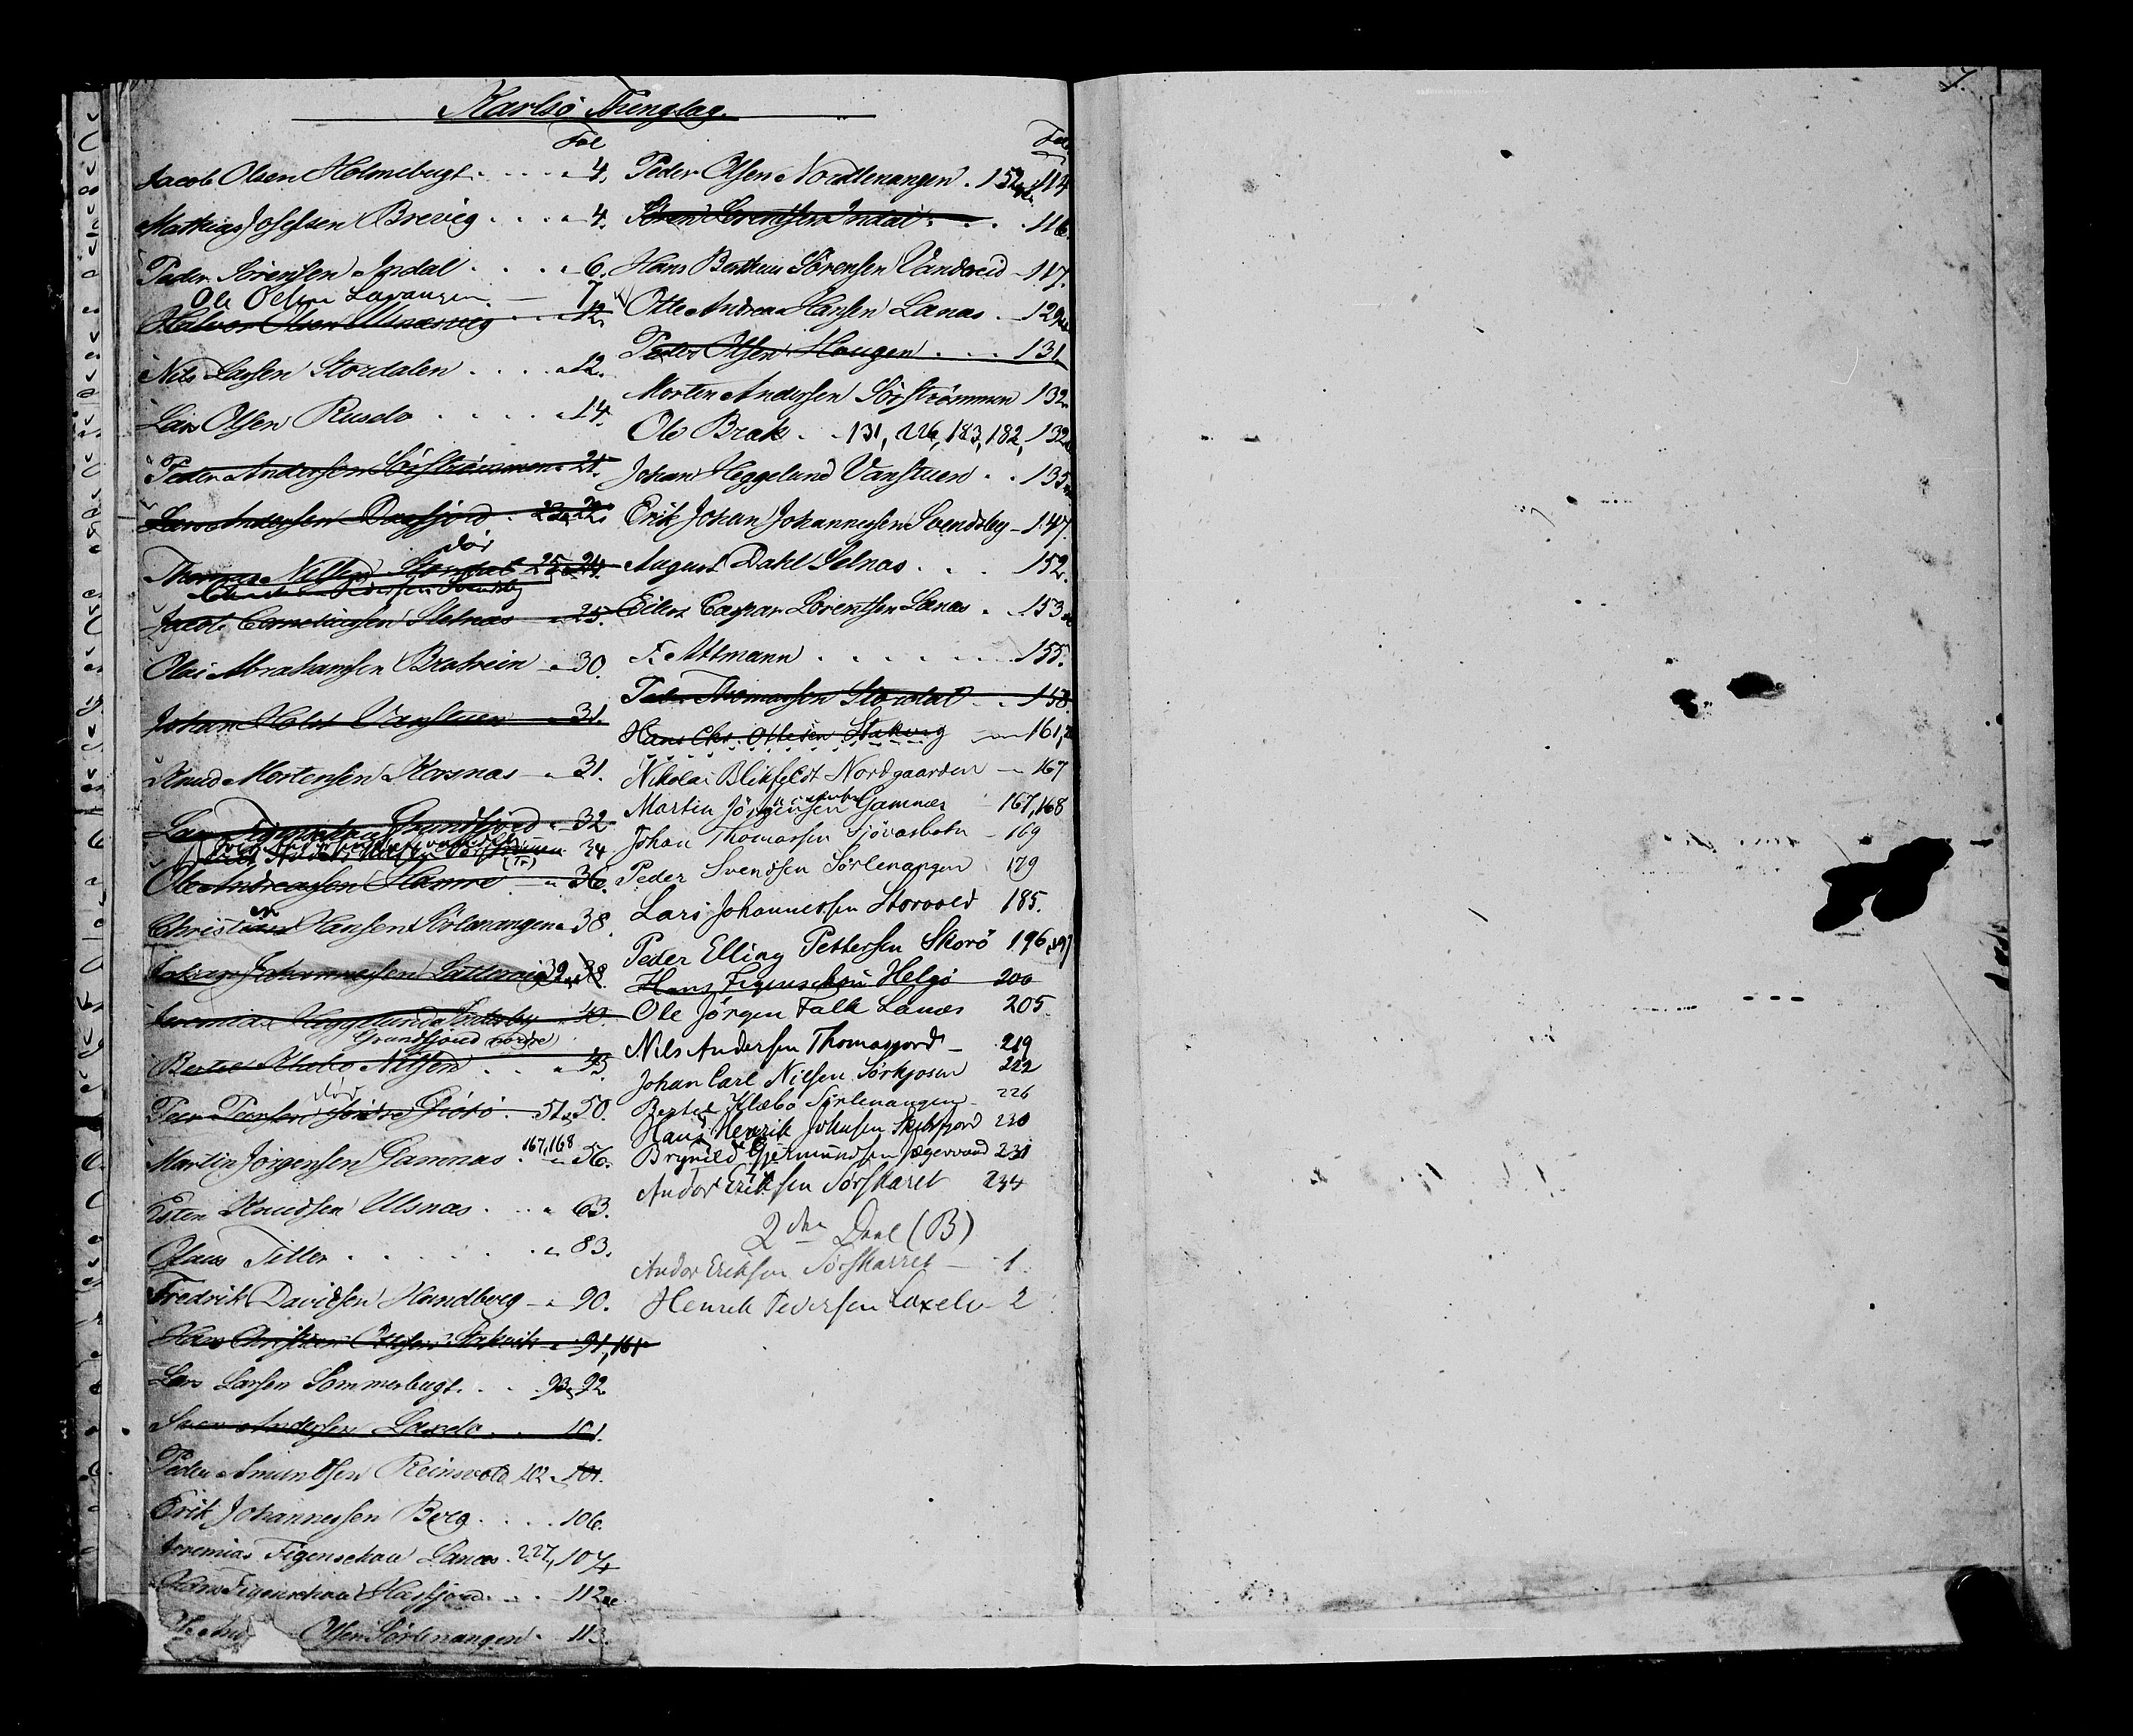 Karlsö Thinglag.
Fol
Jacob Olsen Holmebugt . . . . " 4.
Mathias Josefsen Brevig . . . . " 4.
Peder Sörensen Indal . . . . " 6.
Ole Olsen Lavangen — 7
Halvor Olsen Ulsnæsvig . . " 12.
Nils Larsen Stordalen . . . . " 12.
Lars Olsen Rusela . . . . " 14.
Peder Andersen Sörströmmen " 21.
Lars Andersen Dagfjord . 23 " 22.
Thomas Nilsen Stordal 25 " 24.
död
Svendsby
Jacob Corneliussen Selnæs " 25.
Olai Abrahamsen Bratrein " 30.
Johan Holst Vanstuen " 31.
Knud Mortensen Korsnæs " 31.
Lars Figenschau Grundfjord " 32
34
Ole Andreassen Hamre " 36.
Christian Hansen Sörlenangen " 38.
Johan Johannessen Lattervig 39 " 38.
Jeremias Heggelund " 40.
Grundfjord nordre
Bertel Klæbo Nilsen . . " 45.
död
Peer Peersen Söndre Grötö . 51 " 50.
Martin Jörgensen Gamnæs . 167,168 " 56.
Esten Knudsen Ulsnæs . . . " 63.
Claus Tiller . . . . . . " 83.
Fredrik Davidsen Handberg " 90.
Hans Christian Ottesen Stakvik " 91, 161
Lars Larsen Sommerbugt . . . 93 " 92
Andersen Laxela . . . 101.
Peder Amundsen Reinsvold 102 " 101.
Erik Johannessen Berg . . . . 106.
Jeremias Figenschau Lanæs . 227, 107
Hans Figenschau Hasfjord . . . 112
Olsen Sörlenangen . 113.
Fol.
Peder Olsen Nordlenangen . 152 114
Sören Lorentsen Indal . . . 116.
Hans Bertheus Sörensen Vandreid — 117.
Otte Andreas Hansen Lanæs . — 129
Peder Olsen Haugen . . . 131
Morten Andersen Sörströmmen 132
Ole Bræk . . 131, 226, 183, 182, 132
Johan Heggelund Vanstuen . . 135
Erik Johan Johannessen Svendsby — 147.
August Dahl Selnæs . . . 152.
Eilert Caspar Lorentsen Lanæs . . 153
F. Attmann . . . . . . . 155.
Peder Thomassen Stordal . . 158.
Hans Chr. Ottesen Stakvig — 161,
Nikolai Blikfeldt Nordgaarden — 167
Martin Jörgensen Gamnæs 167,168
Johan Thomassen Sjövasbotn — 169
Peder Svendsen Sörlenangen 179
Lars Johannessen Storvold 185.
Peder Elling Pettersen Skorö 196, 197
Hans Figenschau Helgö 200
Ole Jörgen Falk Lanæs 205
Nils Andersen Thomasjord — 219
Johan Carl Nilsen Sörkjosen 222
Bertel Klæbo Sörlenangen 226
Hans Henrik Johnsen Skulsfjord 230
Brynild Gjermundsen Jægervand 231
Andor Eriksen Sörskaret 234
2den Deel (B)
Andor Eriksen Sörskarret — 1.
Henrik Pedersen Laxelv — 2
7.